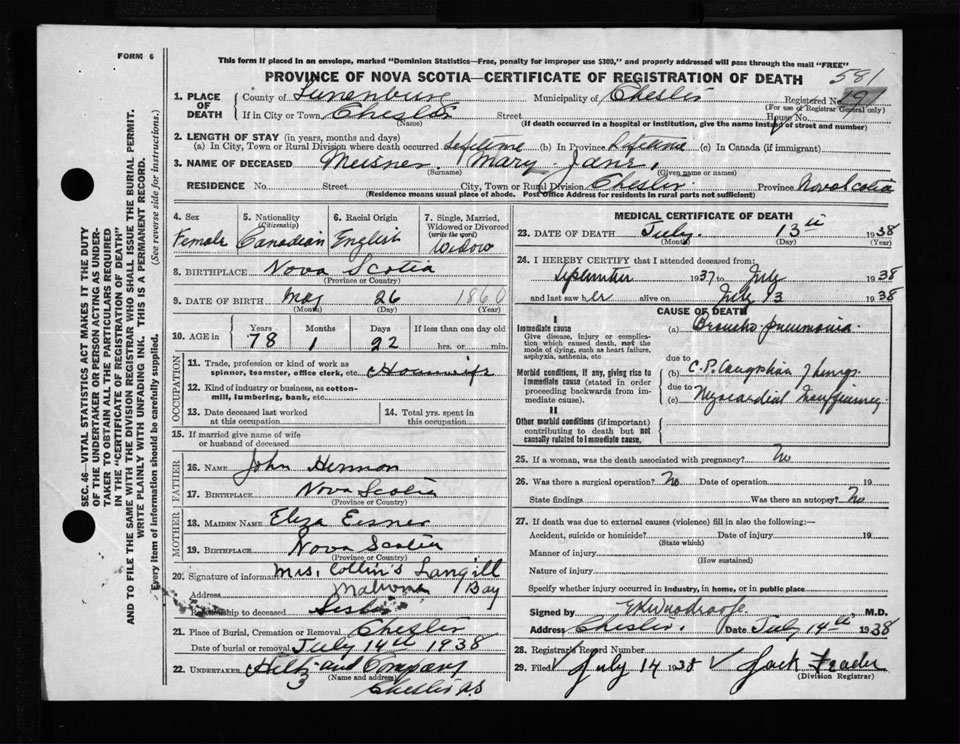 FORM 6
This form if placed in an envelope, marked "Dominion Statistics—Free, penalty for improper use $300," and properly addressed will pass through the mail "FREE"
PROVINCE OF NOVA SCOTIA—CERTIFICATE OF REGISTRATION OF DEATH
581
1. PLACE OF DEATH
County of Lunenburg Municipality of Chester Registered No. 19
(For use of Registrar General only)
If in City or Town Chester Street House No.
(Name) (If death occurred in a hospital or institution, give the name instead of street and number)
2. LENGTH OF STAY (in years, months and days)
(a) In City, Town or Rural Division where death occurred Lifetime (b) In Province Lifetime (c) In Canada (if immigrant)
3. NAME OF DECEASED Meisner, Mary Jane,
(Surname) (Given name or names)
RESIDENCE No. Street City, Town or Rural Division Chester Province Nova Scotia
(Residence means usual place of abode. Post Office Address for residents in rural parts not sufficient)
4. Sex Female
5. Nationality (Citizenship) Canadian
6. Racial Origin English
7. Single, Married, Widowed or Divorced (write the word) Widow
8. BIRTHPLACE Nova Scotia
(Province or Country)
9. DATE OF BIRTH May 26 1860
(Month) (Day) (Year)
10. AGE in Years Months Days If less than one day old
78 1 22 hrs. or min.
OCCUPATION
11. Trade, profession or kind of work as spinner, teamster, office clerk, etc. Housewife
12. Kind of industry or business, as cotton-mill, lumbering, bank, etc.
13. Date deceased last worked at this occupation
14. Total yrs. spent in this occupation
15. If married give name of wife or husband of deceased
FATHER
16. NAME John Hermon
17. BIRTHPLACE Nova Scotia
(Province or Country)
MOTHER
18. MAIDEN NAME Eliza Eisner
19. BIRTHPLACE Nova Scotia
(Province or Country)
20. Signature of informant Mrs. Collin's Langill
Address Mahone Bay
Relationship to deceased Sister
21. Place of Burial, Cremation or Removal Chester
Date of burial or removal July 14th 1938
22. UNDERTAKER Hiltz and Company
(Name and address)
Chester NS
MEDICAL CERTIFICATE OF DEATH
23. DATE OF DEATH July 13th 1938
(Month) (Day) (Year)
24. I HEREBY CERTIFY that I attended deceased from:
September 1937 to July 1938
and last saw her alive on July 13 1938
CAUSE OF DEATH
I
Immediate cause
Give disease, injury or complication which caused death, not the mode of dying, such as heart failure, asphyxia, asthenia, etc.
(a) Broncho-pneumonia.
due to
Morbid conditions, if any, giving rise to immediate cause (stated in order proceeding backwards from immediate cause).
(b) C.P. Congestion
due to
(c) Myocardial Insufficiency
II
Other morbid conditions (if important) contributing to death but not causally related to immediate cause.
25. If a woman, was the death associated with pregnancy? No
26. Was there a surgical operation? No Date of operation 19
State findings Was there an autopsy? No
27. If death was due to external causes (violence) fill in also the following:—
Accident, suicide or homicide? Date of injury 19
(State which)
Manner of injury
(How sustained)
Nature of injury
Specify whether injury occurred in Industry, in home, or in public place
Signed by M.D.
Address Chester. Date July 14th 1938
28. Registrar's Record Number
29. Filed July 14 1938 Jack
(Division Registrar)
SEC. 46—VITAL STATISTICS ACT MAKES IT THE DUTY
OF THE UNDERTAKER OR PERSON ACTING AS UNDER-
TAKER TO OBTAIN ALL THE PARTICULARS REQUIRED
IN THE "CERTIFICATE OF REGISTRATION OF DEATH"
AND TO FILE THE SAME WITH THE DIVISION REGISTRAR WHO SHALL ISSUE THE BURIAL PERMIT.
WRITE PLAINLY WITH UNFADING INK. THIS IS A PERMANENT RECORD.
Every item of information should be carefully supplied. (See reverse side for instructions.)